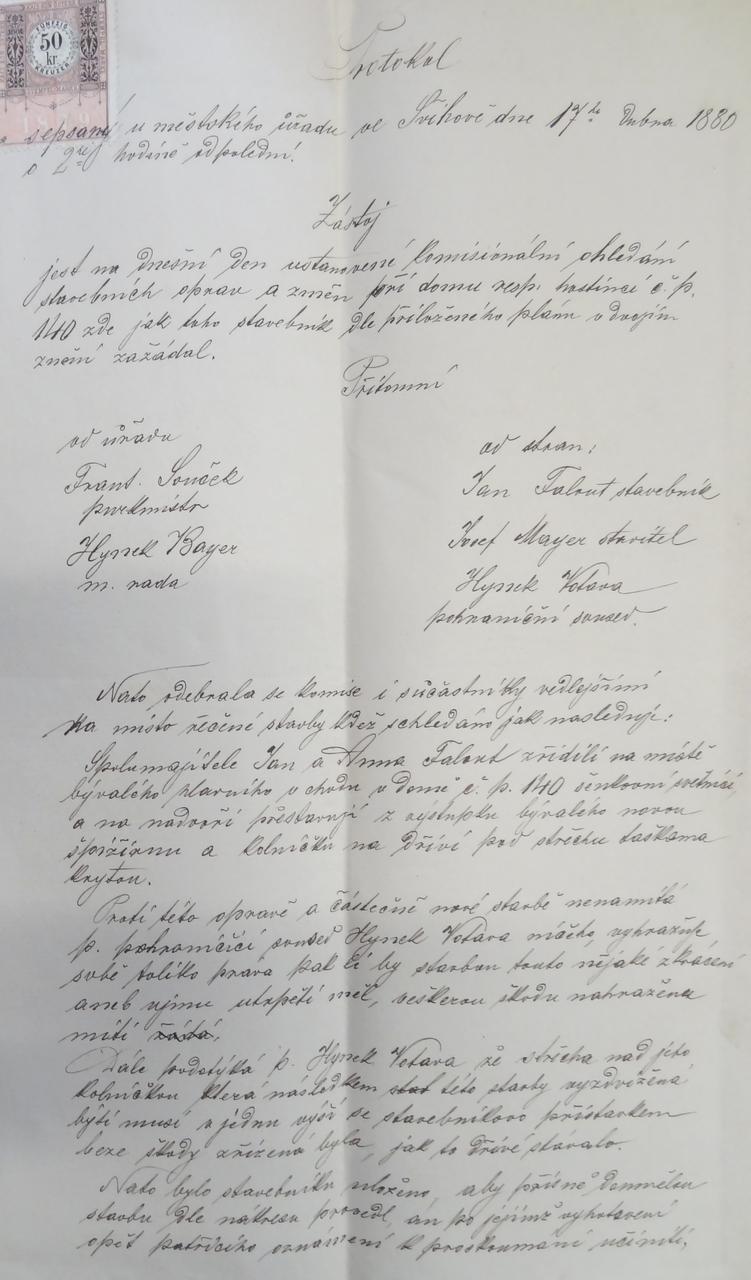 FÜNFZIG
50
kr.
KREUZER
Protokol
sepsaný u městského úřadu ve Švihově dne 17ho Dubna 1880
o 2ré hodině odpolední.
Zástoj
jest na dnešní den ustanovené komisionální ohledání
stavebních oprav a změn při domu resp. hostinci č. p.
140 zde jak toho stavebník dle přiloženého plánu v dvojím
znění zažádal.
Přítomní
od úřadu
Frant. Souček
purkmistr
Hynek Bayer
m. rada
od stran:
Jan Falout stavebník
Josef Mayer stavitel
Hynek Votava
pohraniční soused.
Nato odebrala se komise i súčastníky vedlejšími
na místo řečené stavby kdež schledáno jak následuje:
Spolumajitele Jan a Anna Falout zřídili na místě
bývalého hlavního vchodu v domě č. p. 140 šenkovní světnici,
a na nadvoří přestavují z výstupku bývalého novou
špižírnu a kolničku na dříví pod střechu taškama
krytou.
Proti této opravě a částečně nové stavbě nenamítá
p. pohraničící soused Hynek Votava ničeho, vyhražuje
sobě toliko práva pak li by stavbou touto nějaké zkrácení
aneb ujmu utrpěti měl, veškerou škodu nahraženu
míti žádá.
Dále podotýká p. Hynek Votava že střecha nad jeho
kolničkou která následkem stav této stavby vyzdvižená
býti musí v jednu výši se stavebníkovo přístavkem
beze škody zřízená byla, jak to dříve stávalo.
Nato bylo stavebníku uloženo, aby přísně domnělou
stavbu dle nákresu provedl, an po jejímž vyhotovení
opět patřičího oznámení k proskoumání učiniti.